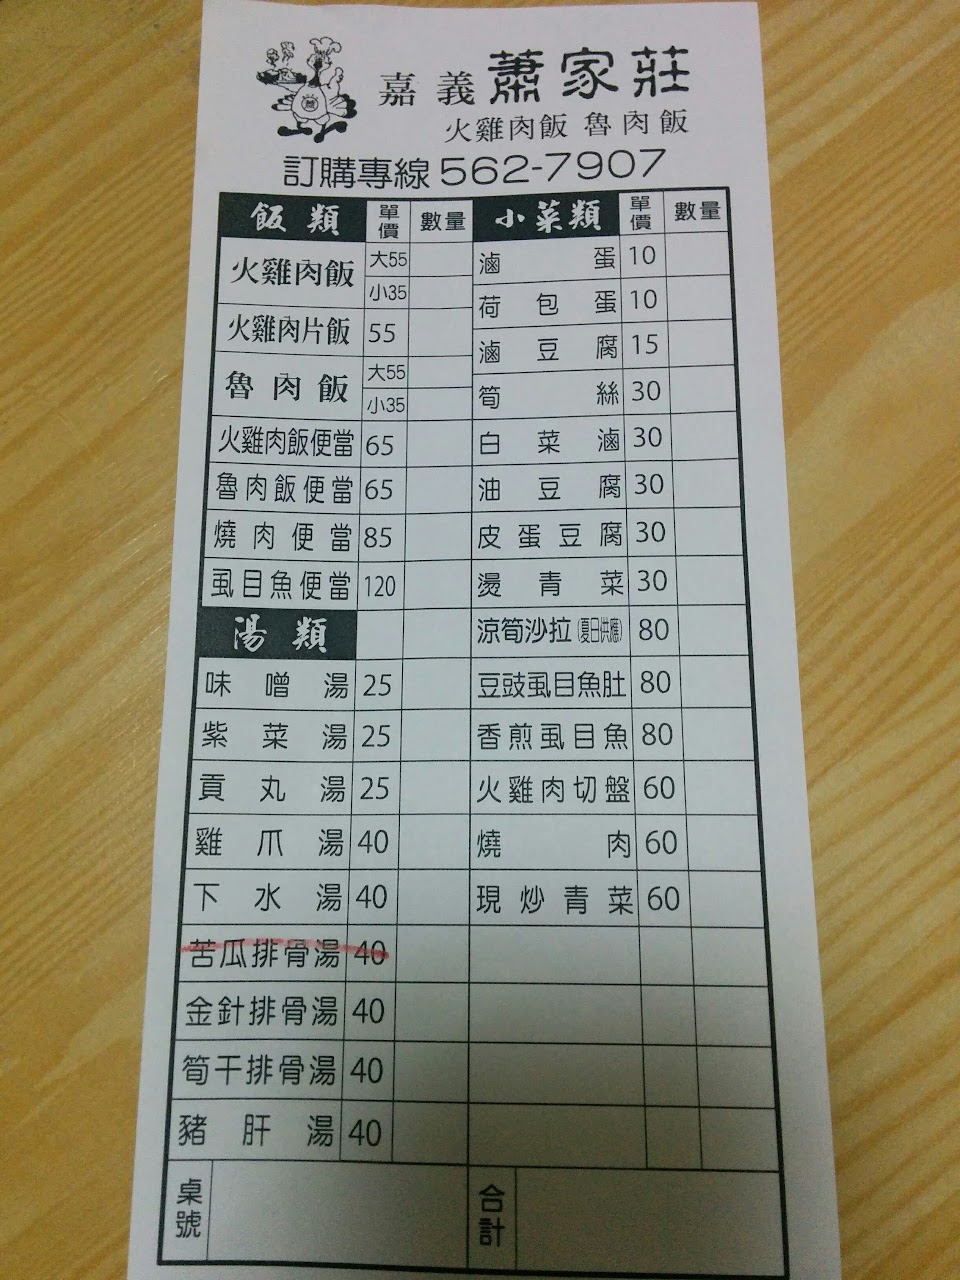 嘉義 蕭家莊
火雞肉飯 魯肉飯
訂購專線562-7907
飯類 單價 數量
火雞肉飯 大55
小35
火雞肉片飯 55
魯肉飯 大55
小35
火雞肉飯便當 65
魯肉飯便當 65
燒肉便當 85
虱目魚便當 120
湯類
味噌湯 25
紫菜湯 25
貢丸湯 25
雞爪湯 40
下水湯 40
苦瓜排骨湯 40
金針排骨湯 40
筍干排骨湯 40
豬肝湯 40
小菜類 單價 數量
滷蛋 10
荷包蛋 10
滷豆腐 15
筍絲 30
白菜滷 30
油豆腐 30
皮蛋豆腐 30
燙青菜 30
涼筍沙拉(夏日供應) 80
豆豉虱目魚肚 80
香煎虱目魚 80
火雞肉切盤 60
燒肉 60
現炒青菜 60
桌號
合計